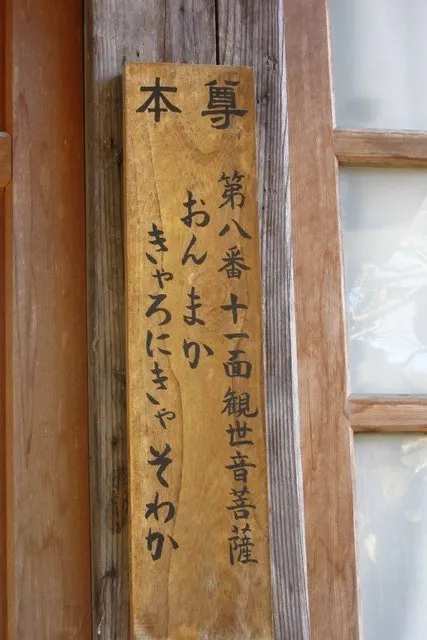 本尊
第八番十一面観世音菩薩
おん まか
きゃろにきゃ そわか